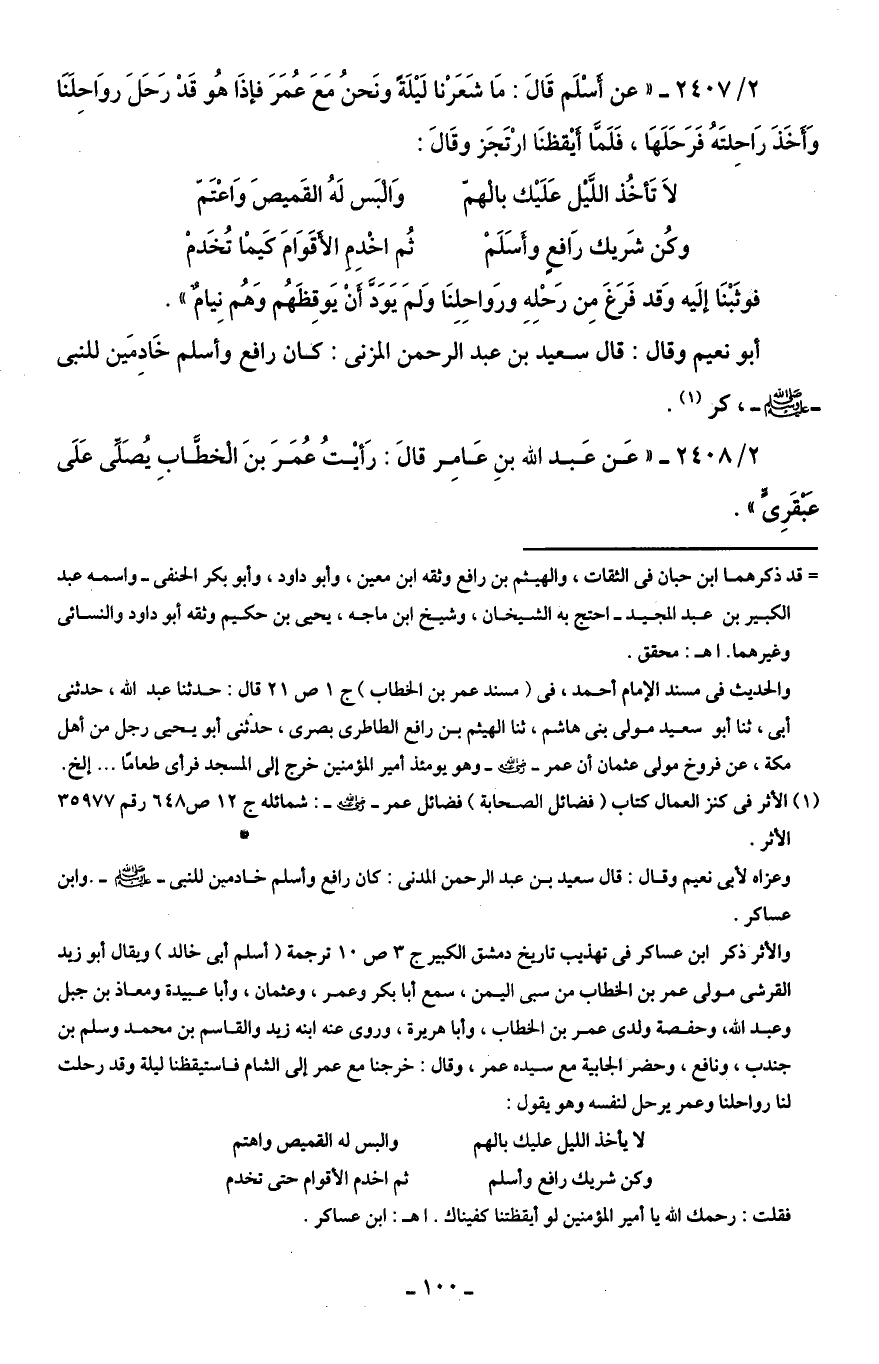 ٢/ ٢٤٠٧ ـ « عن أَسْلَم قَالَ : مَا شَعَرْنا لَيْلَةً ونَحنُ مَعَ عُمَرَ فإِذَا هُو قَدْ رَحَلَ رواحِلنَا
وَأَخَذَ رَاحِلتَهُ فَرَحَلَهَا ، فَلَمَّا أَيْقظنَا ارْتَجَز وقَالَ :
لاَ تَأخُذ اللَّيْل عَلَيْك بالْهمّ وَالْبَس لَهُ القَميصَ وَاعْتَمّ
وكُن شَرِيك رَافعٍ وأَسَلَمْ ثُم اخْدِمِ الأَقْوَامَ كَيمْا تُخْدَمْ
فوثَبْنَا إلَيه وَقد فَرَغَ مِن رَحْلِهِ ورَواحِلِنَا ولَمَ يَوَدَّ أَنْ يَوقِظَهُم وَهُم نِيامٌ » .
أبو نعيم وقال : قال سعيد بن عبد الرحمن المزنى : كان رافع وأسلم خَادِمَين للنبى
ـ ﷺ ـ ، كر (١) .
٢/ ٢٤٠٨ ـ « عَن عَبد الله بنِ عَامِر قالَ : رَأيْتُ عُمَرَ بنَ الْخطَّابِ يُصَلِّى عَلَى
عَبْقَرِىٍّ » .
= قد ذكرهما ابن حبان فى الثقات ، والهيثم بن رافع وثقه ابن معين ، وأبو داود ، وأبو بكر الحنفى ـ واسمه عبد
الكبير بن عبد المجيد ـ احتج به الشيخان ، وشيخ ابن ماجه ، يحيى بن حكيم وثقه أبو داود والنسائى
وغيرهما. ا هـ : محقق .
والحديث فى مسند الإمام أحمد ، فى ( مسند عمر بن الخطاب ) ج ١ ص ٢١ قال : حدثنا عبد الله ، حدثنى
أبى ، ثنا أبو سعيد مولى بنى هاشم ، ثنا الهيثم بن رافع الطاطرى بصرى ، حدثنى أبو يحيى رجل من أهل
مكة ، عن فروخ مولى عثمان أن عمر ـ رضي الله عنه ـ وهو يومئذ أمير المؤمنين خرج إلى المسجد فرأى طعامًا ... إلخ.
(١) الأثر فى كنز العمال كتاب ( فضائل الصحابة ) فضائل عمر ـ رضي الله عنه ـ : شمائله ج ١٢ ص٦٤٨ رقم ٣٥٩٧٧
الأثر .
وعزاه لأبى نعيم وقال : قال سعيد بن عبد الرحمن المدنى : كان رافع وأسلم خادمين للنبى ـ ﷺ ـ .وابن
عساكر .
والأثر ذكر ابن عساكر فى تهذيب تاريخ دمشق الكبير ج ٣ ص ١٠ ترجمة ( أسلم أبى خالد ) ويقال أبو زيد
القرشى مولى عمر بن الخطاب من سبى اليمن ، سمع أبا بكر وعمر ، وعثمان ، وأبا عبيدة ومعاذ بن جبل
وعبد الله، وحفصة ولدى عمر بن الخطاب ، وأبا هريرة ، وروى عنه ابنه زيد والقاسم بن محمد وسلم بن
جندب ، ونافع ، وحضر الجابية مع سيده عمر ، وقال : خرجنا مع عمر إلى الشام فاستيقظنا ليلة وقد رحلت
لنا رواحلنا وعمر يرحل لنفسه وهو يقول :
لا يأخذ الليل عليك بالهم والبس له القميص واهتم
وكن شريك رافع وأسلم ثم اخدم الأقوام حتى تخدم
فقلت : رحمك الله يا أمير المؤمنين لو أيقظتنا كفيناك . ا هـ : ابن عساكر .
ـ ١٠٠ ـ